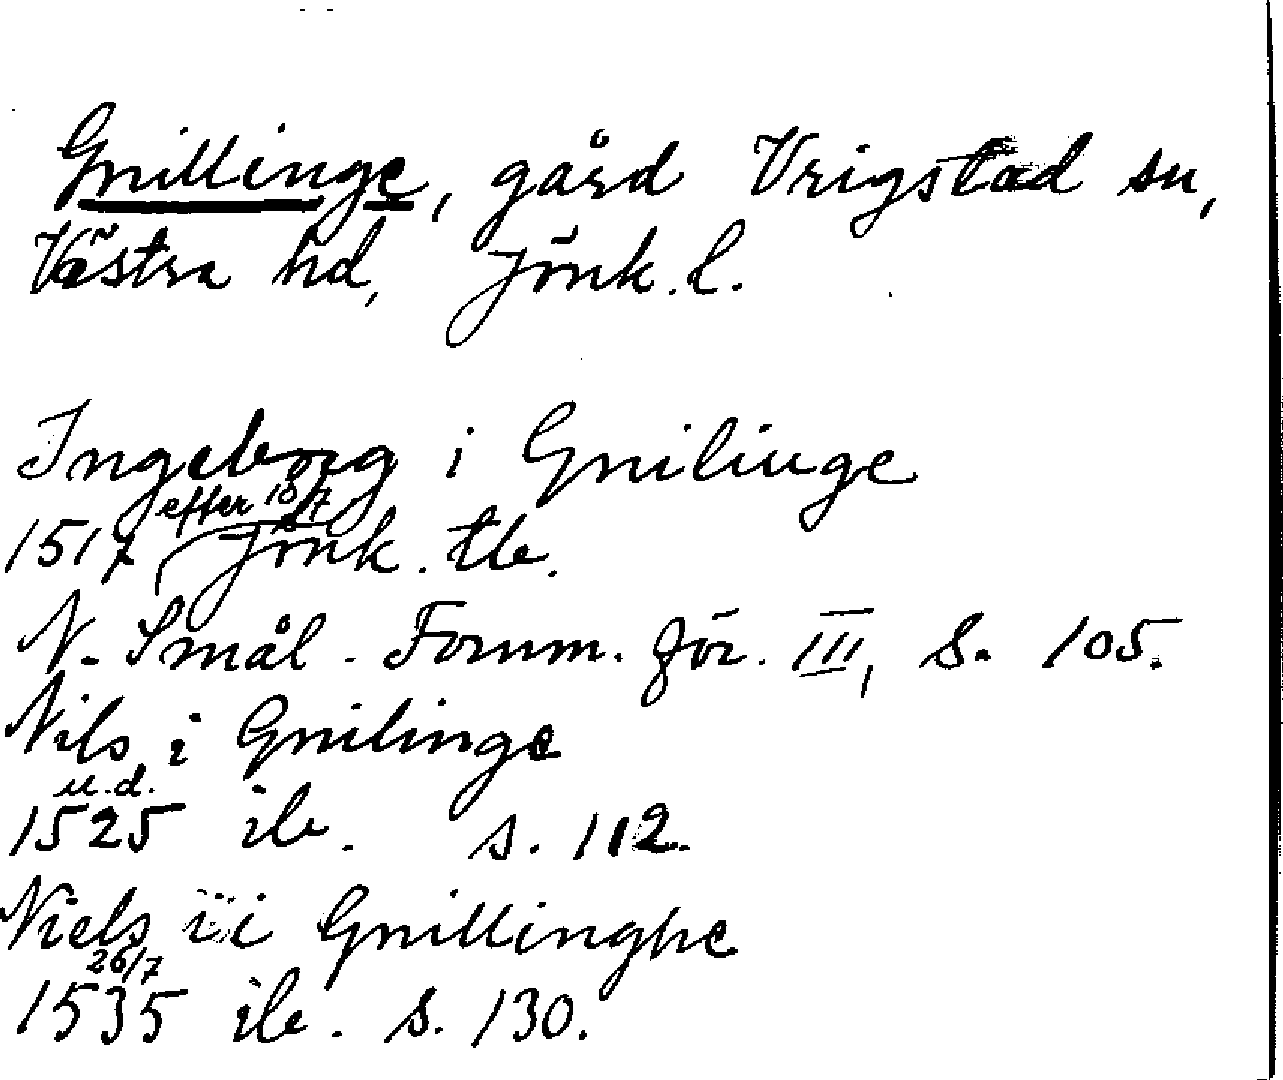 Gnillinge, gård Vrigstad sn,
Västra hd, Jönk. l.
Ingeborg i Gnilinge
efter 10/7
1517 Jönk. tb.
N. Smål. Fornm. för. III, s. 105.
Nils i Gnilinge
u.d.
1525 ib. s. 112.
Niels i Gnillinghe
26/7
1535 ib. s. 130.